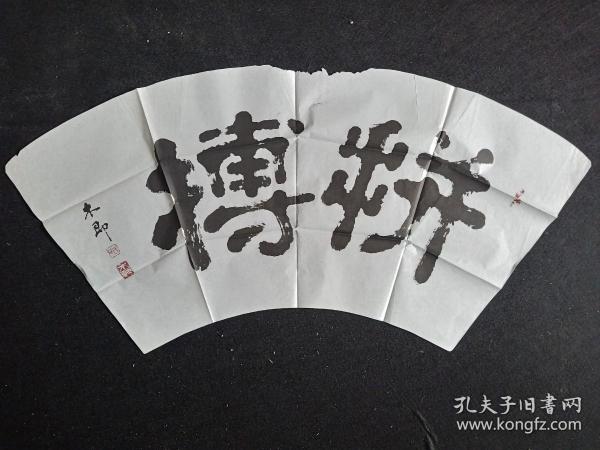 拼搏
木郎
孔夫子旧書网
www.kongfz.com